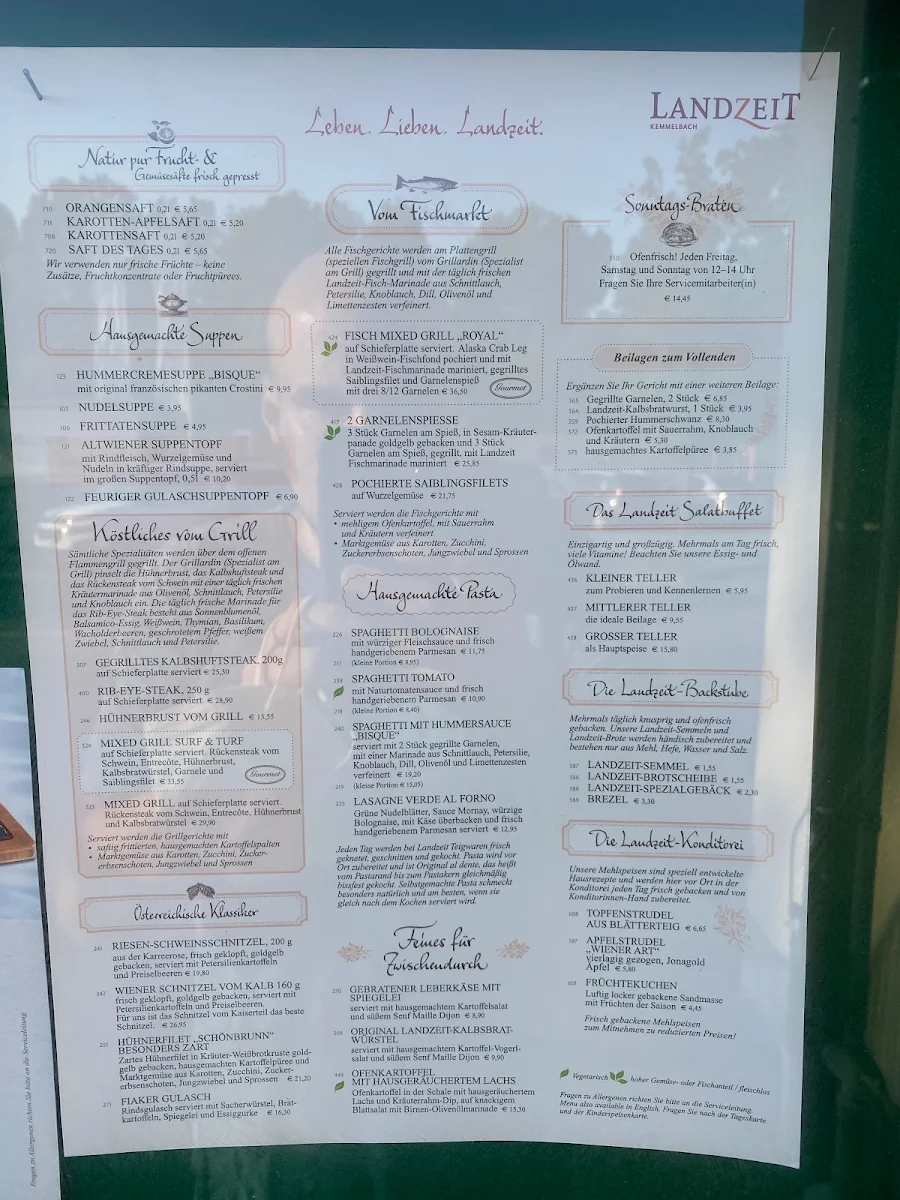 Leben. Lieben. Landzeit.
LANDZEIT
KEMMELBACH
Natur pur Frucht- &
Gemüsesäfte frisch gepresst
710 ORANGENSAFT 0,2l € 5,65
716 KAROTTEN-APFELSAFT 0,2l € 5,20
708 KAROTTENSAFT 0,2l € 5,20
720 SAFT DES TAGES 0,2l € 5,65
Wir verwenden nur frische Früchte – keine
Zusätze, Fruchtkonzentrate oder Fruchtpürees.
Hausgemachte Suppen
123 HUMMERCREMESUPPE „BISQUE“
mit original französischen pikanten Crostini € 9,95
103 NUDELSUPPE € 3,95
106 FRITTATENSUPPE € 4,95
121 ALTWIENER SUPPENTOPF
mit Rindfleisch, Wurzelgemüse und
Nudeln in kräftiger Rindsuppe, serviert
im großen Suppentopf, 0,5l € 10,20
122 FEURIGER GULASCHSUPPENTOPF € 6,90
Köstliches vom Grill
Sämtliche Spezialitäten werden über dem offenen
Flammengrill gegrillt. Der Grillardin (Spezialist am
Grill) pinselt die Hühnerbrust, das Kalbshuftsteak und
das Rückensteak vom Schwein mit einer täglich frischen
Kräutermarinade aus Olivenöl, Schnittlauch, Petersilie
und Knoblauch ein. Die täglich frische Marinade für
das Rib-Eye-Steak besteht aus Sonnenblumenöl,
Balsamico-Essig, Weißwein, Thymian, Basilikum,
Wacholderbeeren, geschrotetem Pfeffer, weißem
Zwiebel, Schnittlauch und Petersilie.
307 GEGRILLTES KALBSHUFTSTEAK, 200g
auf Schieferplatte serviert € 25,30
400 RIB-EYE-STEAK, 250 g
auf Schieferplatte serviert € 28,90
246 HÜHNERBRUST VOM GRILL € 15,55
324 MIXED GRILL SURF & TURF
auf Schieferplatte serviert. Rückensteak vom
Schwein, Entrecôte, Hühnerbrust,
Kalbsbratwürstel, Garnele und
Saiblingsfilet € 33,55
Gourmet
323 MIXED GRILL auf Schieferplatte serviert.
Rückensteak vom Schwein, Entrecôte, Hühnerbrust
und Kalbsbratwürstel € 29,90
Serviert werden die Grillgerichte mit
• saftig frittierten, hausgemachten Kartoffelspalten
• Marktgemüse aus Karotten, Zucchini, Zucker-
erbsenschoten, Jungzwiebel und Sprossen
Österreichische Klassiker
241 RIESEN-SCHWEINSSCHNITZEL, 200 g
aus der Karreerose, frisch geklopft, goldgelb
gebacken, serviert mit Petersilienkartoffeln
und Preiselbeeren € 19,80
242 WIENER SCHNITZEL VOM KALB 160 g
frisch geklopft, goldgelb gebacken, serviert mit
Petersilienkartoffeln und Preiselbeeren.
Für uns ist das Schnitzel vom Kaiserteil das beste
Schnitzel. € 26,95
251 HÜHNERFILET „SCHÖNBRUNN“
BESONDERS ZART
Zartes Hühnerfilet in Kräuter-Weißbrotkruste gold-
gelb gebacken, hausgemachten Kartoffelpüree und
Marktgemüse aus Karotten, Zucchini, Zucker-
erbsenschoten, Jungzwiebel und Sprossen € 21,20
271 FIAKER GULASCH
Rindsgulasch serviert mit Sacherwürstel, Brat-
kartoffeln, Spiegelei und Essiggurke € 16,30
Vom Fischmarkt
Alle Fischgerichte werden am Plattengrill
(speziellen Fischgrill) vom Grillardin (Spezialist
am Grill) gegrillt und mit der täglich frischen
Landzeit-Fisch-Marinade aus Schnittlauch,
Petersilie, Knoblauch, Dill, Olivenöl und
Limettenzesten verfeinert.
424 FISCH MIXED GRILL „ROYAL“
auf Schieferplatte serviert. Alaska Crab Leg
in Weißwein-Fischfond pochiert und mit
Landzeit-Fischmarinade mariniert, gegrilltes
Saiblingsfilet und Garnelenspieß
mit drei 8/12 Garnelen € 36,50
Gourmet
417 2 GARNELENSPIESSE
3 Stück Garnelen am Spieß, in Sesam-Kräuter-
panade goldgelb gebacken und 3 Stück
Garnelen am Spieß, gegrillt, mit Landzeit
Fischmarinade mariniert € 25,85
428 POCHIERTE SAIBLINGSFILETS
auf Wurzelgemüse € 21,75
Serviert werden die Fischgerichte mit
• mehligem Ofenkartoffel, mit Sauerrahm
und Kräutern verfeinert
• Marktgemüse aus Karotten, Zucchini,
Zuckererbsenschoten, Jungzwiebel und Sprossen
Hausgemachte Pasta
226 SPAGHETTI BOLOGNAISE
mit würziger Fleischsauce und frisch
handgeriebenem Parmesan € 11,75
217 (kleine Portion € 8,95)
238 SPAGHETTI TOMATO
mit Naturtomatensauce und frisch
handgeriebenem Parmesan € 10,90
218 (kleine Portion € 8,40)
240 SPAGHETTI MIT HUMMERSAUCE
„BISQUE“
serviert mit 2 Stück gegrillte Garnelen,
mit einer Marinade aus Schnittlauch, Petersilie,
Knoblauch, Dill, Olivenöl und Limettenzesten
verfeinert € 19,20
219 (kleine Portion € 15,05)
225 LASAGNE VERDE AL FORNO
Grüne Nudelblätter, Sauce Mornay, würzige
Bolognaise, mit Käse überbacken und frisch
handgeriebenem Parmesan serviert € 12,95
Jeden Tag werden bei Landzeit Teigwaren frisch
geknetet, geschnitten und gekocht. Pasta wird vor
Ort zubereitet und ist Original al dente, das heißt
vom Pastarand bis zum Pastakern gleichmäßig
bissfest gekocht. Selbstgemachte Pasta schmeckt
besonders natürlich und am besten, wenn sie
gleich nach dem Kochen serviert wird.
Feines für
Zwischendurch
GEBRATENER LEBERKÄSE MIT
SPIEGELEI
serviert mit hausgemachtem Kartoffelsalat
und süßem Senf Maille Dijon € 8,90
ORIGINAL LANDZEIT-KALBSBRAT-
WÜRSTEL
serviert mit hausgemachtem Kartoffel-Vogerl-
salat und süßem Senf Maille Dijon € 9,90
OFENKARTOFFEL
MIT HAUSGERÄUCHERTEM LACHS
Ofenkartoffel in der Schale mit hausgeräuchertem
Lachs und Kräuterrahm-Dip, auf knackigem
Blattsalat mit Birnen-Olivenölmarinade € 15,30
Sonntags-Braten
Ofenfrisch! Jeden Freitag,
Samstag und Sonntag von 12–14 Uhr
Fragen Sie Ihre Servicemitarbeiter(in)
€ 14,45
Beilagen zum Vollenden
Ergänzen Sie Ihr Gericht mit einer weiteren Beilage:
363 Gegrillte Garnelen, 2 Stück € 6,85
364 Landzeit-Kalbsbratwurst, 1 Stück € 3,95
359 Pochierter Hummerschwanz € 8,30
572 Ofenkartoffel mit Sauerrahm, Knoblauch
und Kräutern € 5,30
571 hausgemachtes Kartoffelpüree € 3,85
Das Landzeit Salatbuffet
Einzigartig und großzügig, Mehrmals am Tag frisch,
viele Vitamine! Beachten Sie unsere Essig- und
Ölwand.
436 KLEINER TELLER
zum Probieren und Kennenlernen € 5,95
437 MITTLERER TELLER
die ideale Beilage € 9,55
438 GROSSER TELLER
als Hauptspeise € 15,80
Die Landzeit-Backstube
Mehrmals täglich knusprig und ofenfrisch
gebacken. Unsere Landzeit-Semmeln und
Landzeit-Brote werden händisch zubereitet und
bestehen nur aus Mehl, Hefe, Wasser und Salz.
587 LANDZEIT-SEMMEL € 1,55
586 LANDZEIT-BROTSCHEIBE € 1,55
588 LANDZEIT-SPEZIALGEBÄCK € 2,30
589 BREZEL € 3,30
Die Landzeit-Konditorei
Unsere Mehlspeisen sind speziell entwickelte
Hausrezepte und werden hier vor Ort in der
Konditorei jeden Tag frisch gebacken und von
Konditorinnen-Hand zubereitet.
608 TOPFENSTRUDEL
AUS BLÄTTERTEIG € 6,65
597 APFELSTRUDEL
„WIENER ART“
vierlagig gezogen, Jonagold
Apfel € 5,80
601 FRÜCHTEKUCHEN
Luftig locker gebackene Sandmasse
mit Früchten der Saison € 4,45
Frisch gebackene Mehlspeisen
zum Mitnehmen zu reduzierten Preisen!
Vegetarisch hoher Gemüse- oder Fischanteil / fleischlos
Fragen zu Allergenen richten Sie bitte an die Serviceleitung.
Menu also available in English. Fragen Sie nach der Tageskarte
und der Kinderspeisenkarte.
Fragen zu Allergenen richten Sie bitte an die Serviceleitung